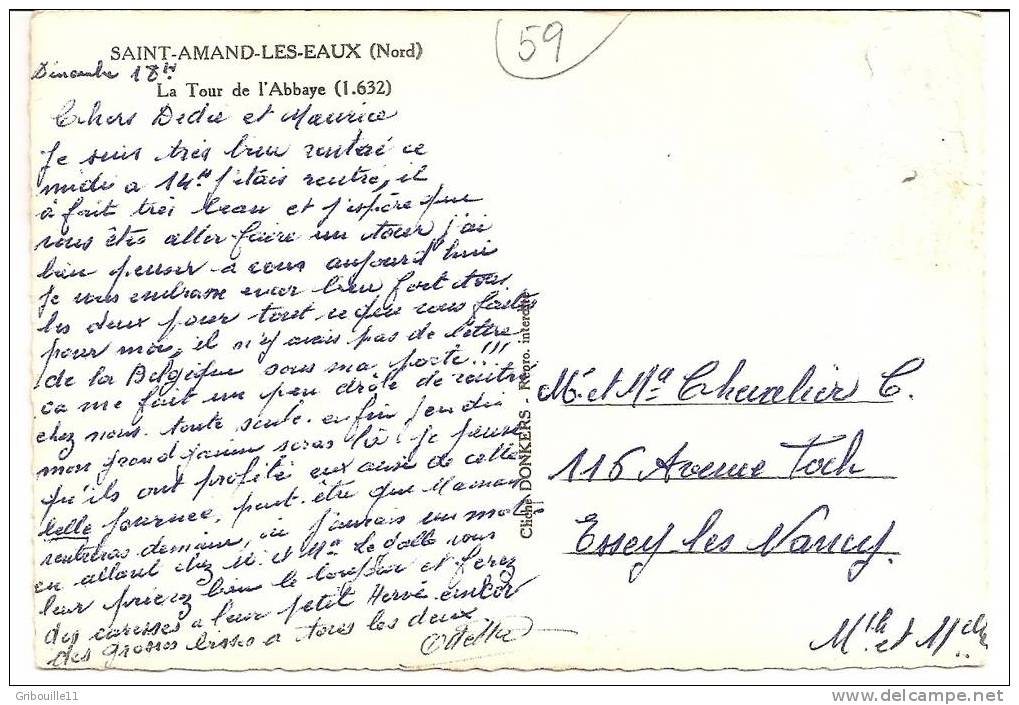 59
SAINT-AMAND-LES-EAUX (Nord)
Dimanche 18h
La Tour de l'Abbaye (1.632)
Chers Dedée et Maurice
Je suis très bien rentré ce
midi a 14h j'étais rentré, il
à fait très beau et j'espère que
vous êtes aller faire un tour, j'ai
bien penser a vous aujourd'hui
Je vous embrasse encor bien fort tous
les deux pour tout ce que vous faites
pour moi, il n'y avais pas de lettre
de la Belgique sous ma porte!!!
ça me fait un peu drôle de
chez nous toute seule. enfin Jeudi
mon grand seras là. Je pense
qu'ils ont profité eux aussi de cette
belle journée, peut-être que Maman
rentreras demain, si jamais un
en allant chez M. et Me Le vous
leur bien le et ferez
des caresses a leur petit Hervé encor
des grosses bisses a tous les deux
Odette
Cliché DONKERS - Repro. interdite
Mr. et Me Chevalier C.
116 Avenue Foch
Essey les Nancy.
Mth et Mlle
Gribouille11
www.delcampe.net